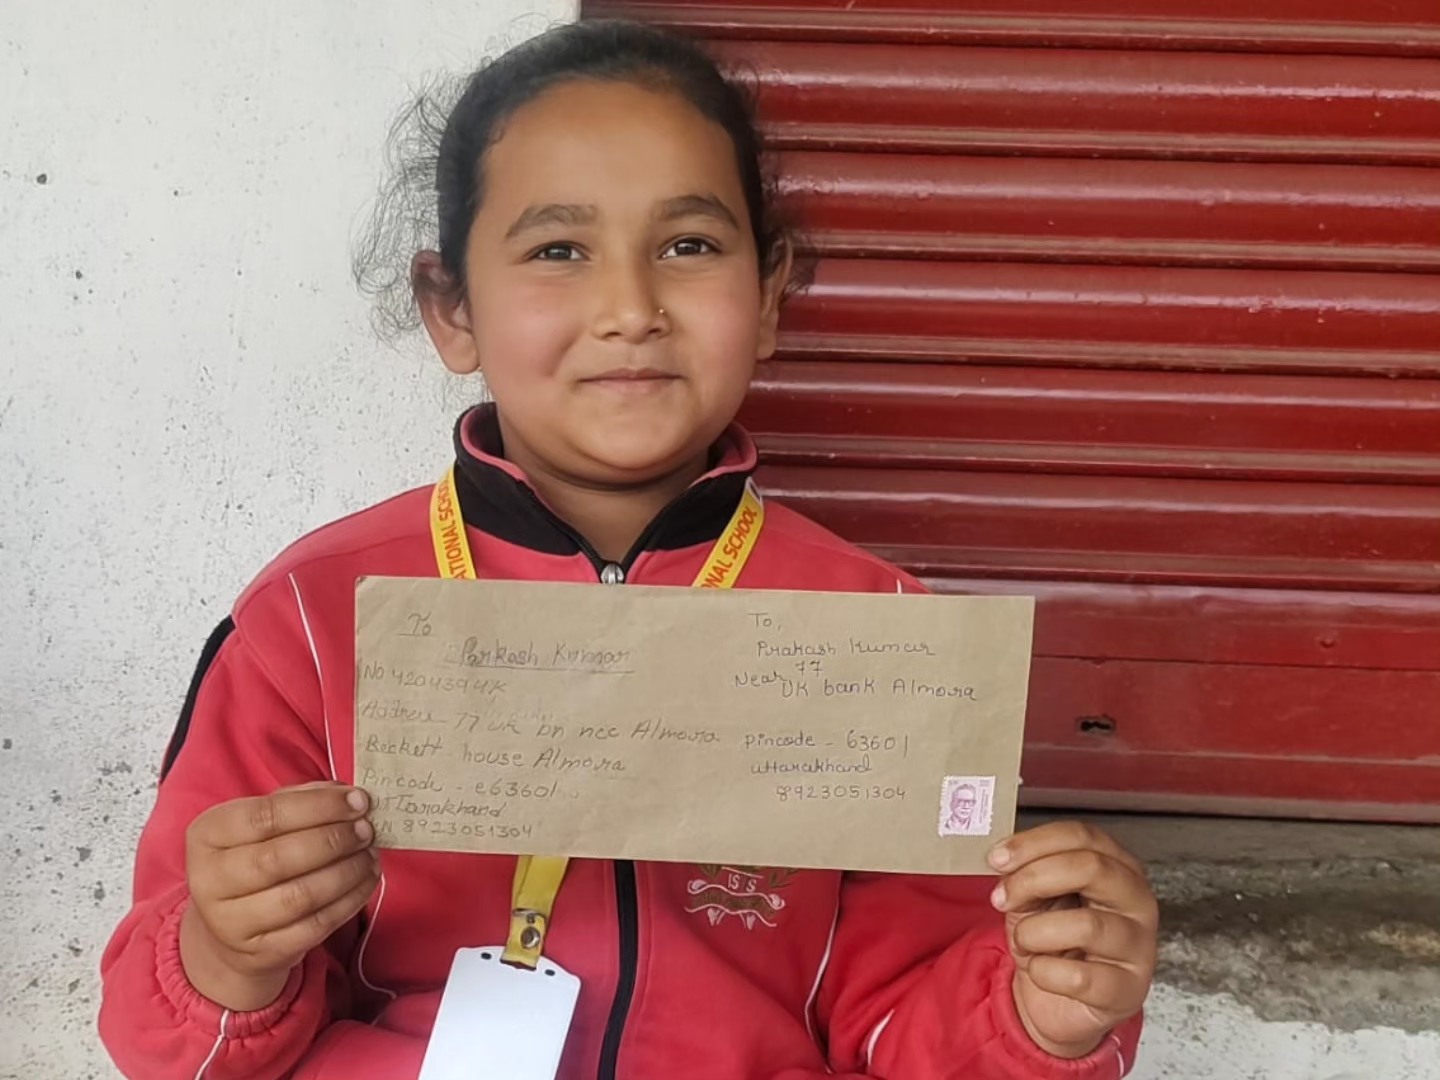 ATIONAL SCHO
ONAL SCHOOL
To
Parkash Kumar
No 4204394K
Address 77 UK bn ncc Almora
Beckett house Almora
Pincode - e63601
UTTarakhand
8923051304
To,
Prakash Kumar
77
Near UK bank Almora
pincode - 63601
uttarakhand
8923051304
ISS